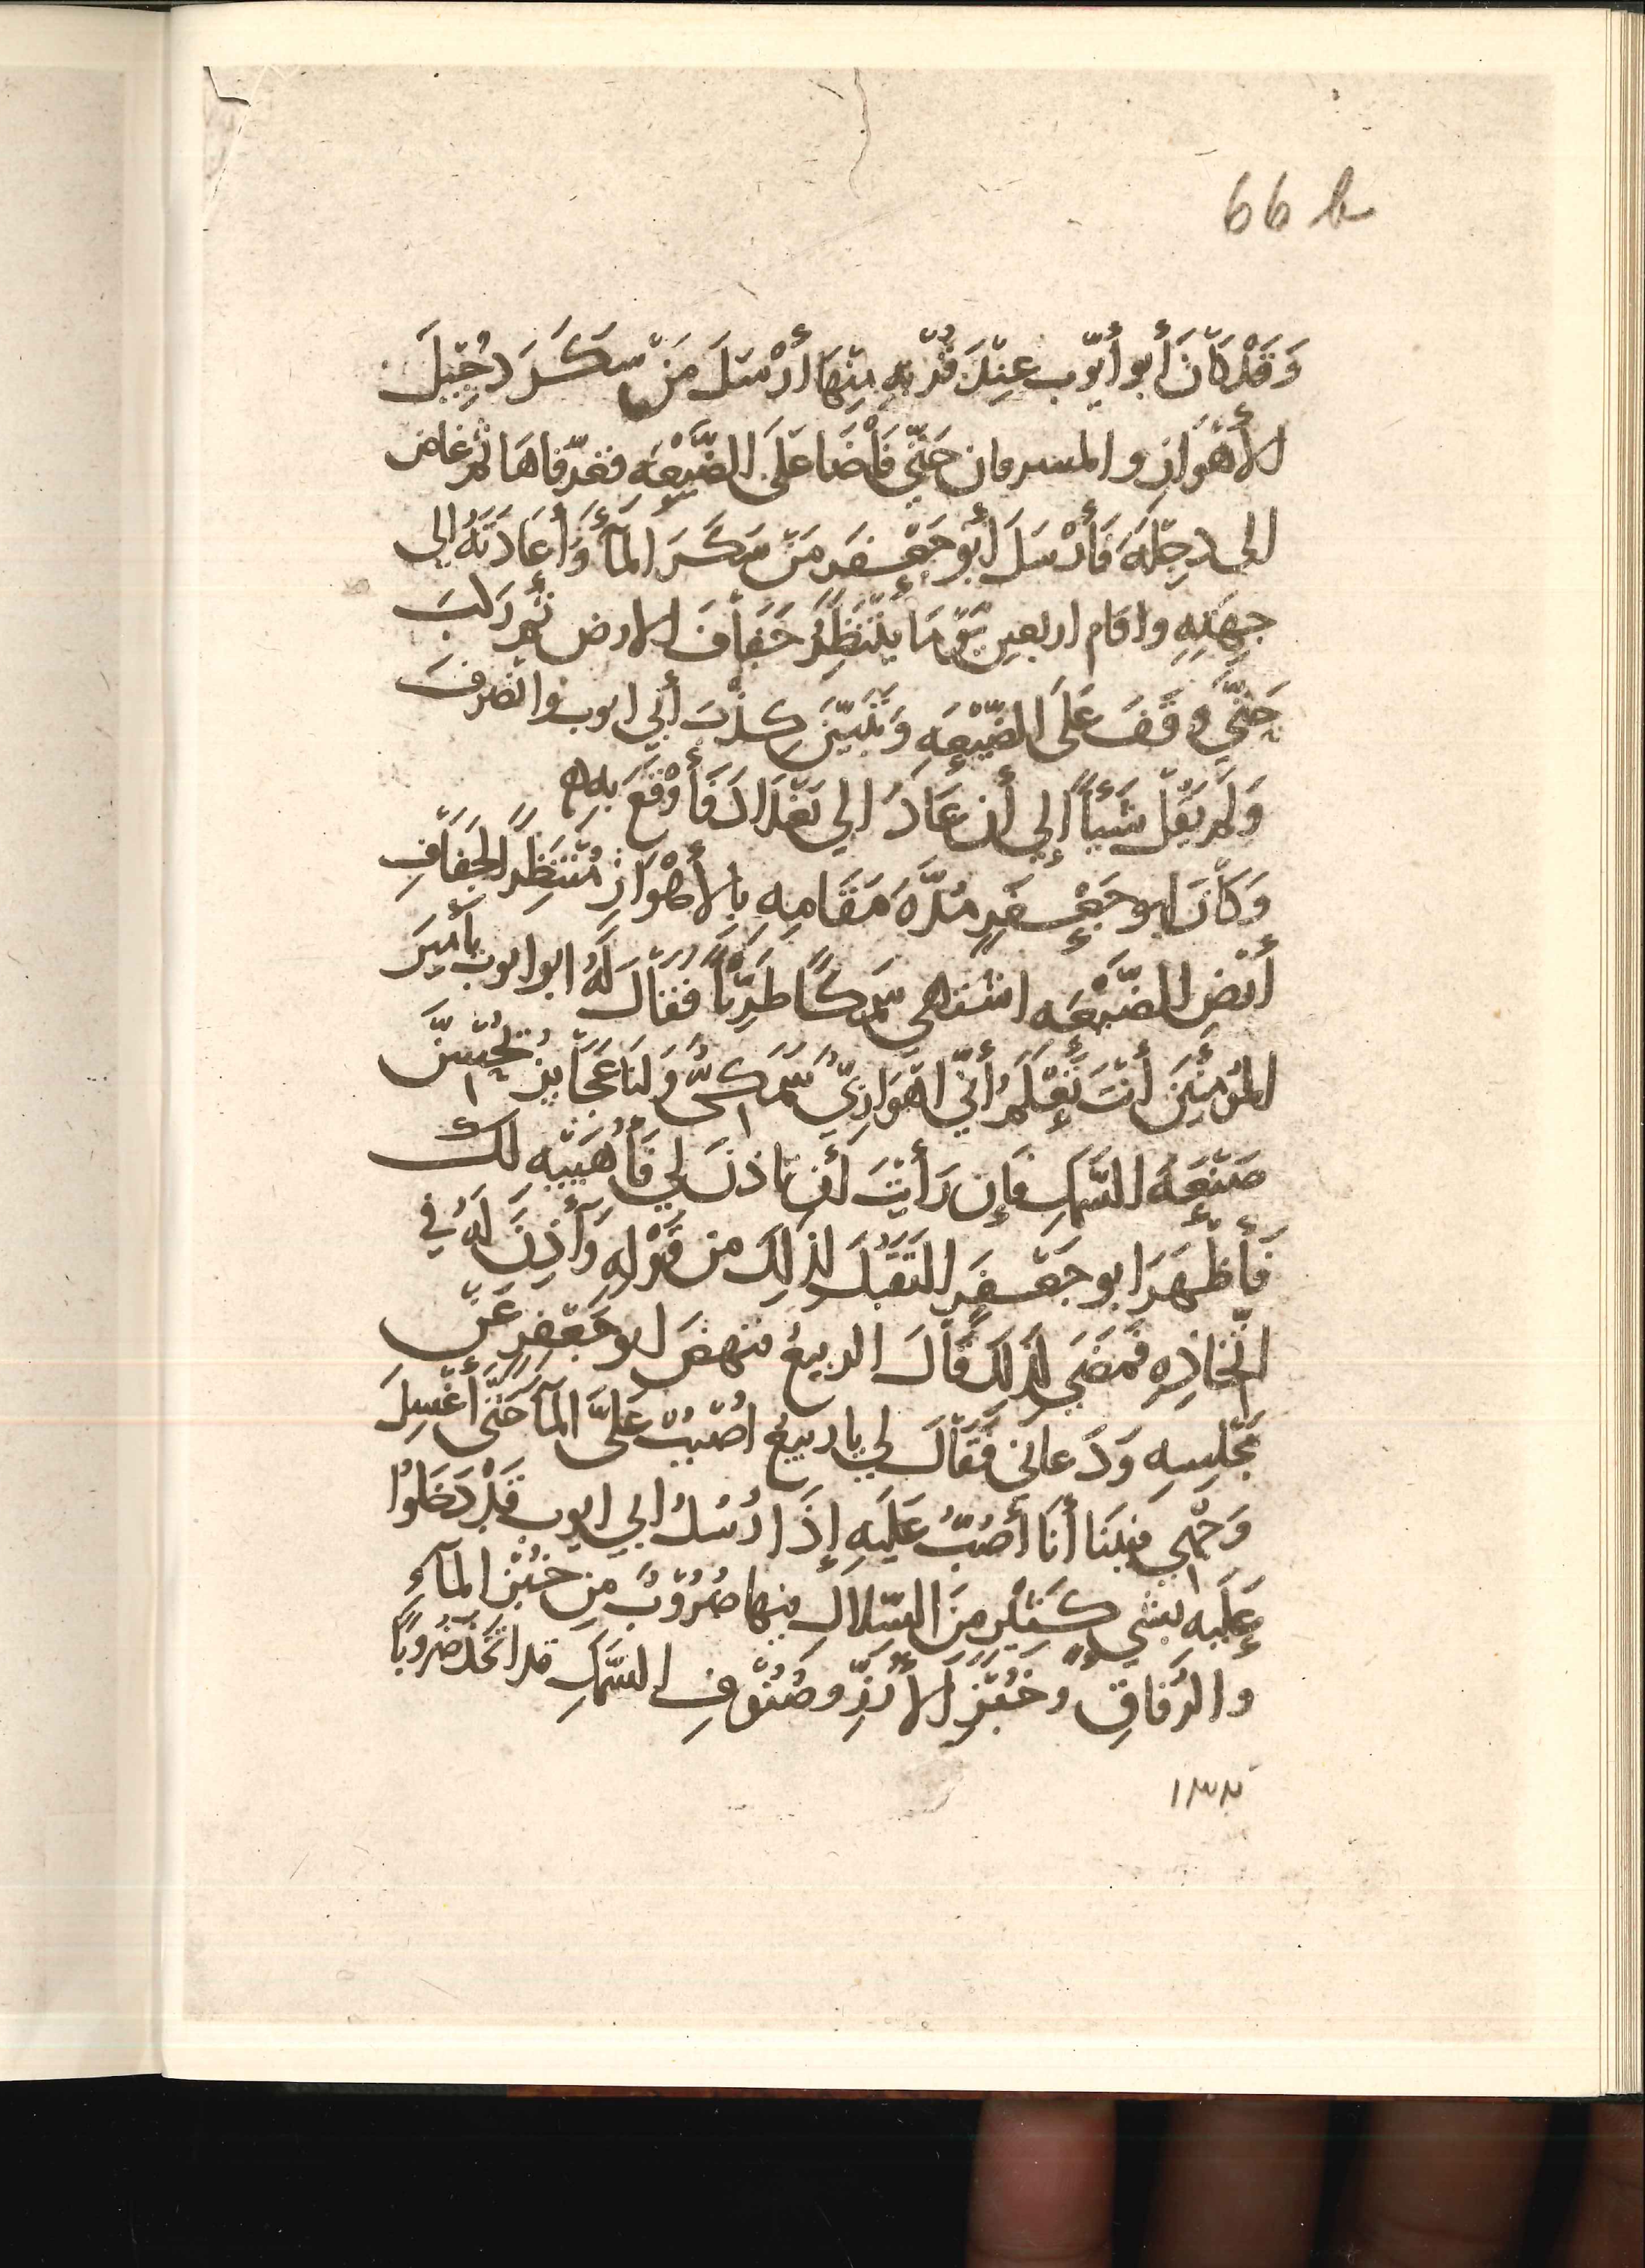 66 b
وَقَدْ كَانَ أَبو أَيّوب عِنْدَ قُرْبِهِ مِنْهَا أَرْسَلَ مَنْ سَكَرَ دُجَيْلَ
الأَهْوَازِ والمسرقان حَتَّى فَاْضَا عَلَى الضَّيْعَهِ فغرّقاهَا ثُمّ غاض
الى دِجْلَهَ فَأَرْسَلَ أَبُو جَعْفَرٍ مَنْ سَكَرَ المآءَ وَأَعَادَتَهُ إلى
جِهَتِهِ واقام اربعين يَوْمًا يَنْتَظِرُ جَفَافَ الارض ثُمّ رَكبَ
حَتَّى وقَفَ عَلَى الضَّيْعَهِ وَتَبَيّنَ كِذْبَ أَبي ايوب وانْصَرفَ
وَلَمْ يَقُلْ شَيْئاً إِلي أَن عَادَ الي بَغْدَادَ فَأَوْقَعَ بِهِم
وَكَانَ ابو جَعْفَرٍ مُدَّهَ مَقَامِهِ بِالأَهْوَازِ مُنْتَظِراً لِجَفَافِ
أَرْضِ الضَّيْعَهِ اشتهى سَمَكًا طَرِيّاً فَقَالَ لَهُ ابو ايوب يا أَميرَ
المُؤْمِنِيَنَ أَنْتَ تَعْلَمُ أَنِّي اهْوَازِيٌّ سَمَكِىٌّ وَلنَا عَجَايِز يُحْسِنَّ
صَنْعَهَ السَّمَكِ فَإِن رَأَيْتَ أَن تاذنَ لي فَأُهَيِّيهِ لك
فَأَظْهَرَ ابو جَعْفَرٍ التَقَبُّلَ لِذلِكَ من قَوْلِهِ وَأَذِنَ لَهُ في
اتّخاذِهِ فَمَضَى لِذلِكَ قَالَ الربيعُ فنهضَ ابو جَعْفَرٍ عَنْ
مَجْلِسِهِ وَدَعانى فَقَالَ لي يا ربيعُ اصْبُبْ عَلَىَّ المآءَ حَتَّى أَغْسِلَ
وَجْهِي فبَيْنَا أَنَا أَصُبُّ عَلَيْهِ إِذَا رُسُلُ ابي ايوب قَدْ دَخَلُوْا
عَلَيْهِ بشيءٍ كَثِيْرٍ مِنَ السِّلالِ فيها ضُرُوْبٌ مِن خُبْزِ المآءِ
والرُّقاقِ وخُبْزِ الأَرُزِّ وصُنُوْفِ السَّمَكِ قد اتَّخَذَ ضُروباً